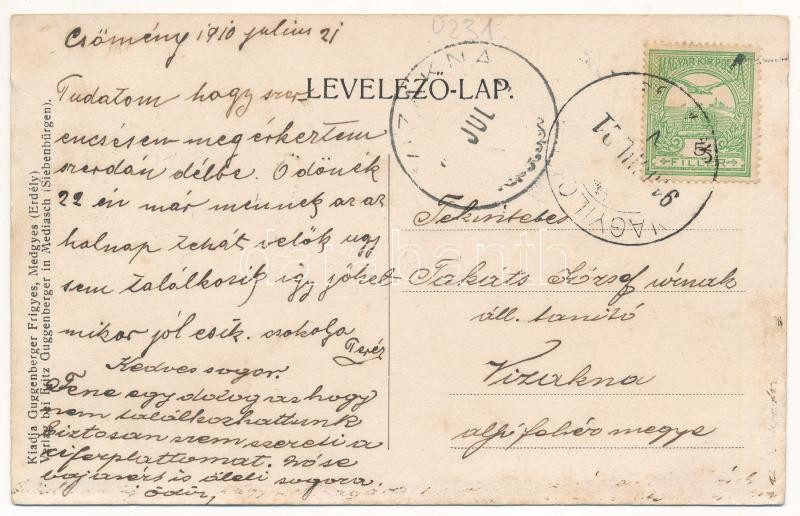 U231
Csömény 1910 július 21
LEVELEZŐ-LAP.
Tudatom hogy szer-
encsésen megérkeztem
szerdán délbe. Ödönék
22 én már mennek az az
holnap tehát velök ugy
sem találkozik, így jöhet
mikor jól esik. csokolja
Teréz
Kedves sogor.
Fene egy dolog az hogy
nem találkozhattunk
biztosan nem szereti a
cziferplattomat. nóse
bajavért is öleli sogora
Ödön,
VIZAKNA
JUL
NAGYILO
MAGYAR KIR. POSTA
5
FILLÉR
Tekintetes
Takáts József úrnak
áll. tanító
Vizakna
alsófehér megye
Kiadja Guggenberger Frigyes, Medgyes (Erdély)
Verlag bei Fritz Guggenberger in Mediasch (Siebenbürgen).
darabanth